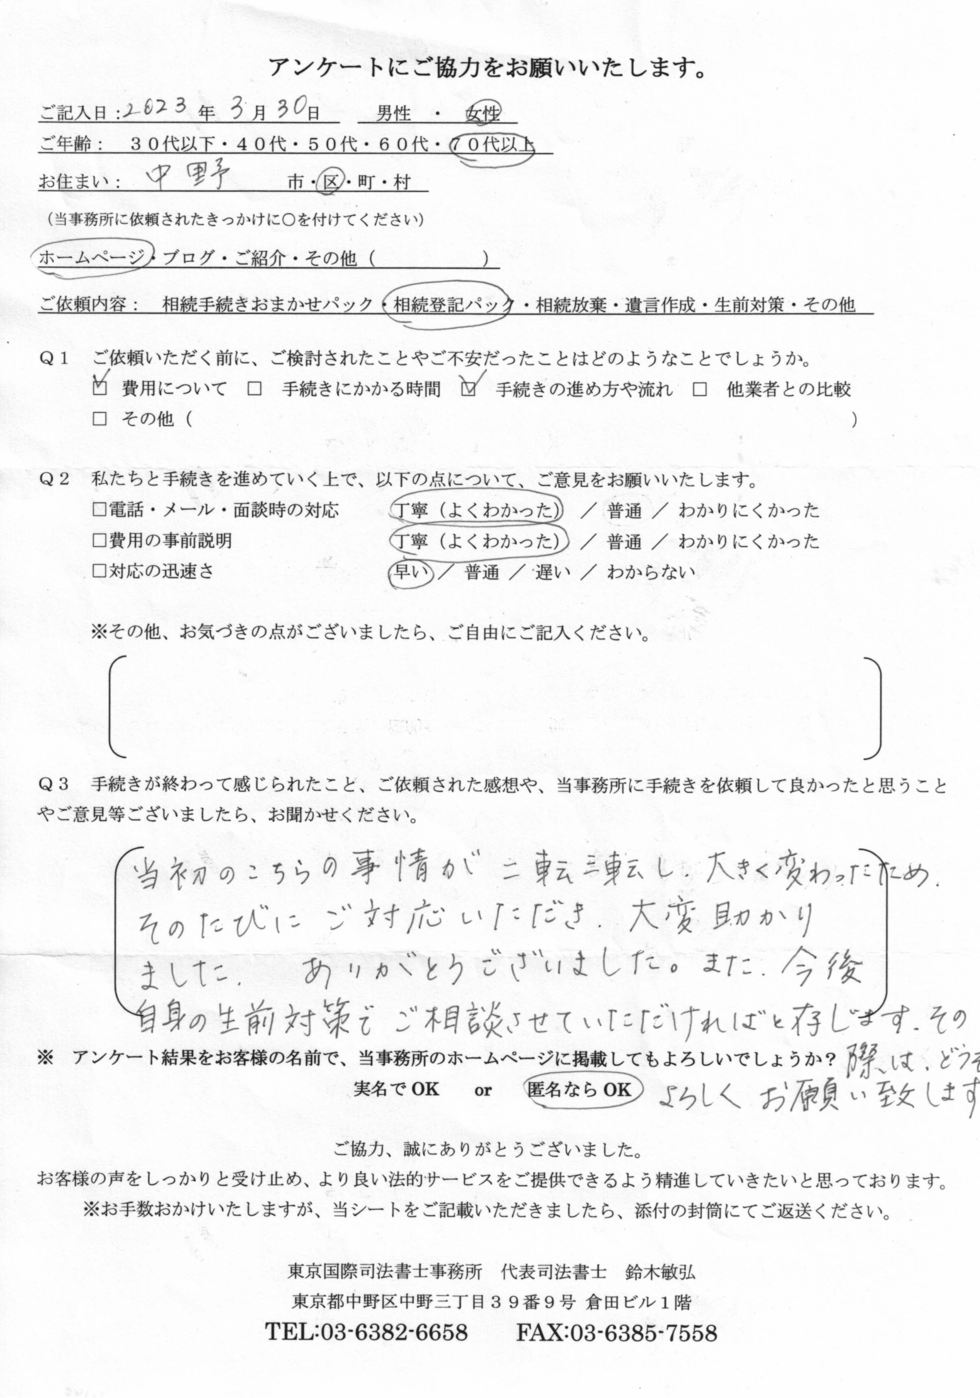 アンケートにご協力をお願いいたします。
ご記入日:2023年 3月30日 男性 ・ 女性
ご年齢： 30代以下・40代・50代・60代・70代以上
お住まい： 中野 市・区・町・村
（当事務所に依頼されたきっかけに〇を付けてください）
ホームページ・ブログ・ご紹介・その他（ ）
ご依頼内容： 相続手続きおまかせパック・相続登記パック・相続放棄・遺言作成・生前対策・その他
Q１ ご依頼いただく前に、ご検討されたことやご不安だったことはどのようなことでしょうか。
☑ 費用について □ 手続きにかかる時間 ☑ 手続きの進め方や流れ □ 他業者との比較
□ その他（ ）
Q２ 私たちと手続きを進めていく上で、以下の点について、ご意見をお願いいたします。
□電話・メール・面談時の対応 丁寧（よくわかった）／ 普通 ／ わかりにくかった
□費用の事前説明 丁寧（よくわかった）／ 普通 ／ わかりにくかった
□対応の迅速さ 早い ／ 普通 ／ 遅い ／ わからない
※その他、お気づきの点がございましたら、ご自由にご記入ください。
Q３ 手続きが終わって感じられたこと、ご依頼された感想や、当事務所に手続きを依頼して良かったと思うこと
やご意見等ございましたら、お聞かせください。
当初のこちらの事情が二転三転し、大きく変わったため、
そのたびにご対応いただき、大変助かり
ました。 ありがとうございました。また、今後
自身の生前対策でご相談させていただければと存じます。その
※ アンケート結果をお客様の名前で、当事務所のホームページに掲載してもよろしいでしょうか？ 際は、どうぞ
実名で OK or 匿名なら OK よろしくお願い致します
ご協力、誠にありがとうございました。
お客様の声をしっかりと受け止め、より良い法的サービスをご提供できるよう精進していきたいと思っております。
※お手数おかけいたしますが、当シートをご記載いただきましたら、添付の封筒にてご返送ください。
東京国際司法書士事務所 代表司法書士 鈴木敏弘
東京都中野区中野三丁目３９番９号 倉田ビル１階
TEL:03-6382-6658 FAX:03-6385-7558